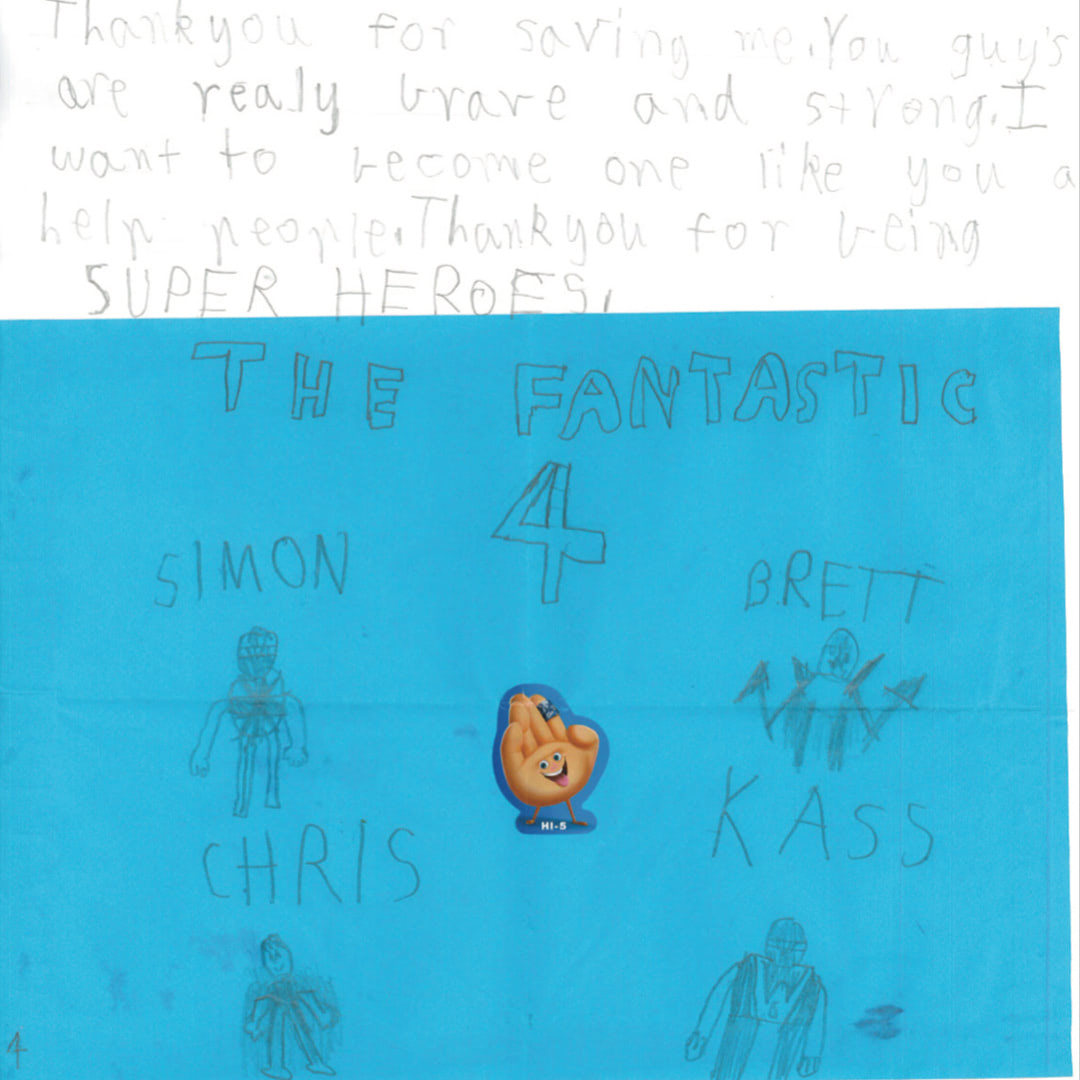 Thankyou for saving me. You guy's
are realy brave and strong. I
want to become one like you a
help people. Thankyou for being
SUPER HEROES.
THE FANTASTIC
4
SIMON
BRETT
HI-5
CHRIS
KASS
4